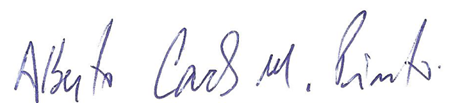 Alberto Carlos M. Pinto.